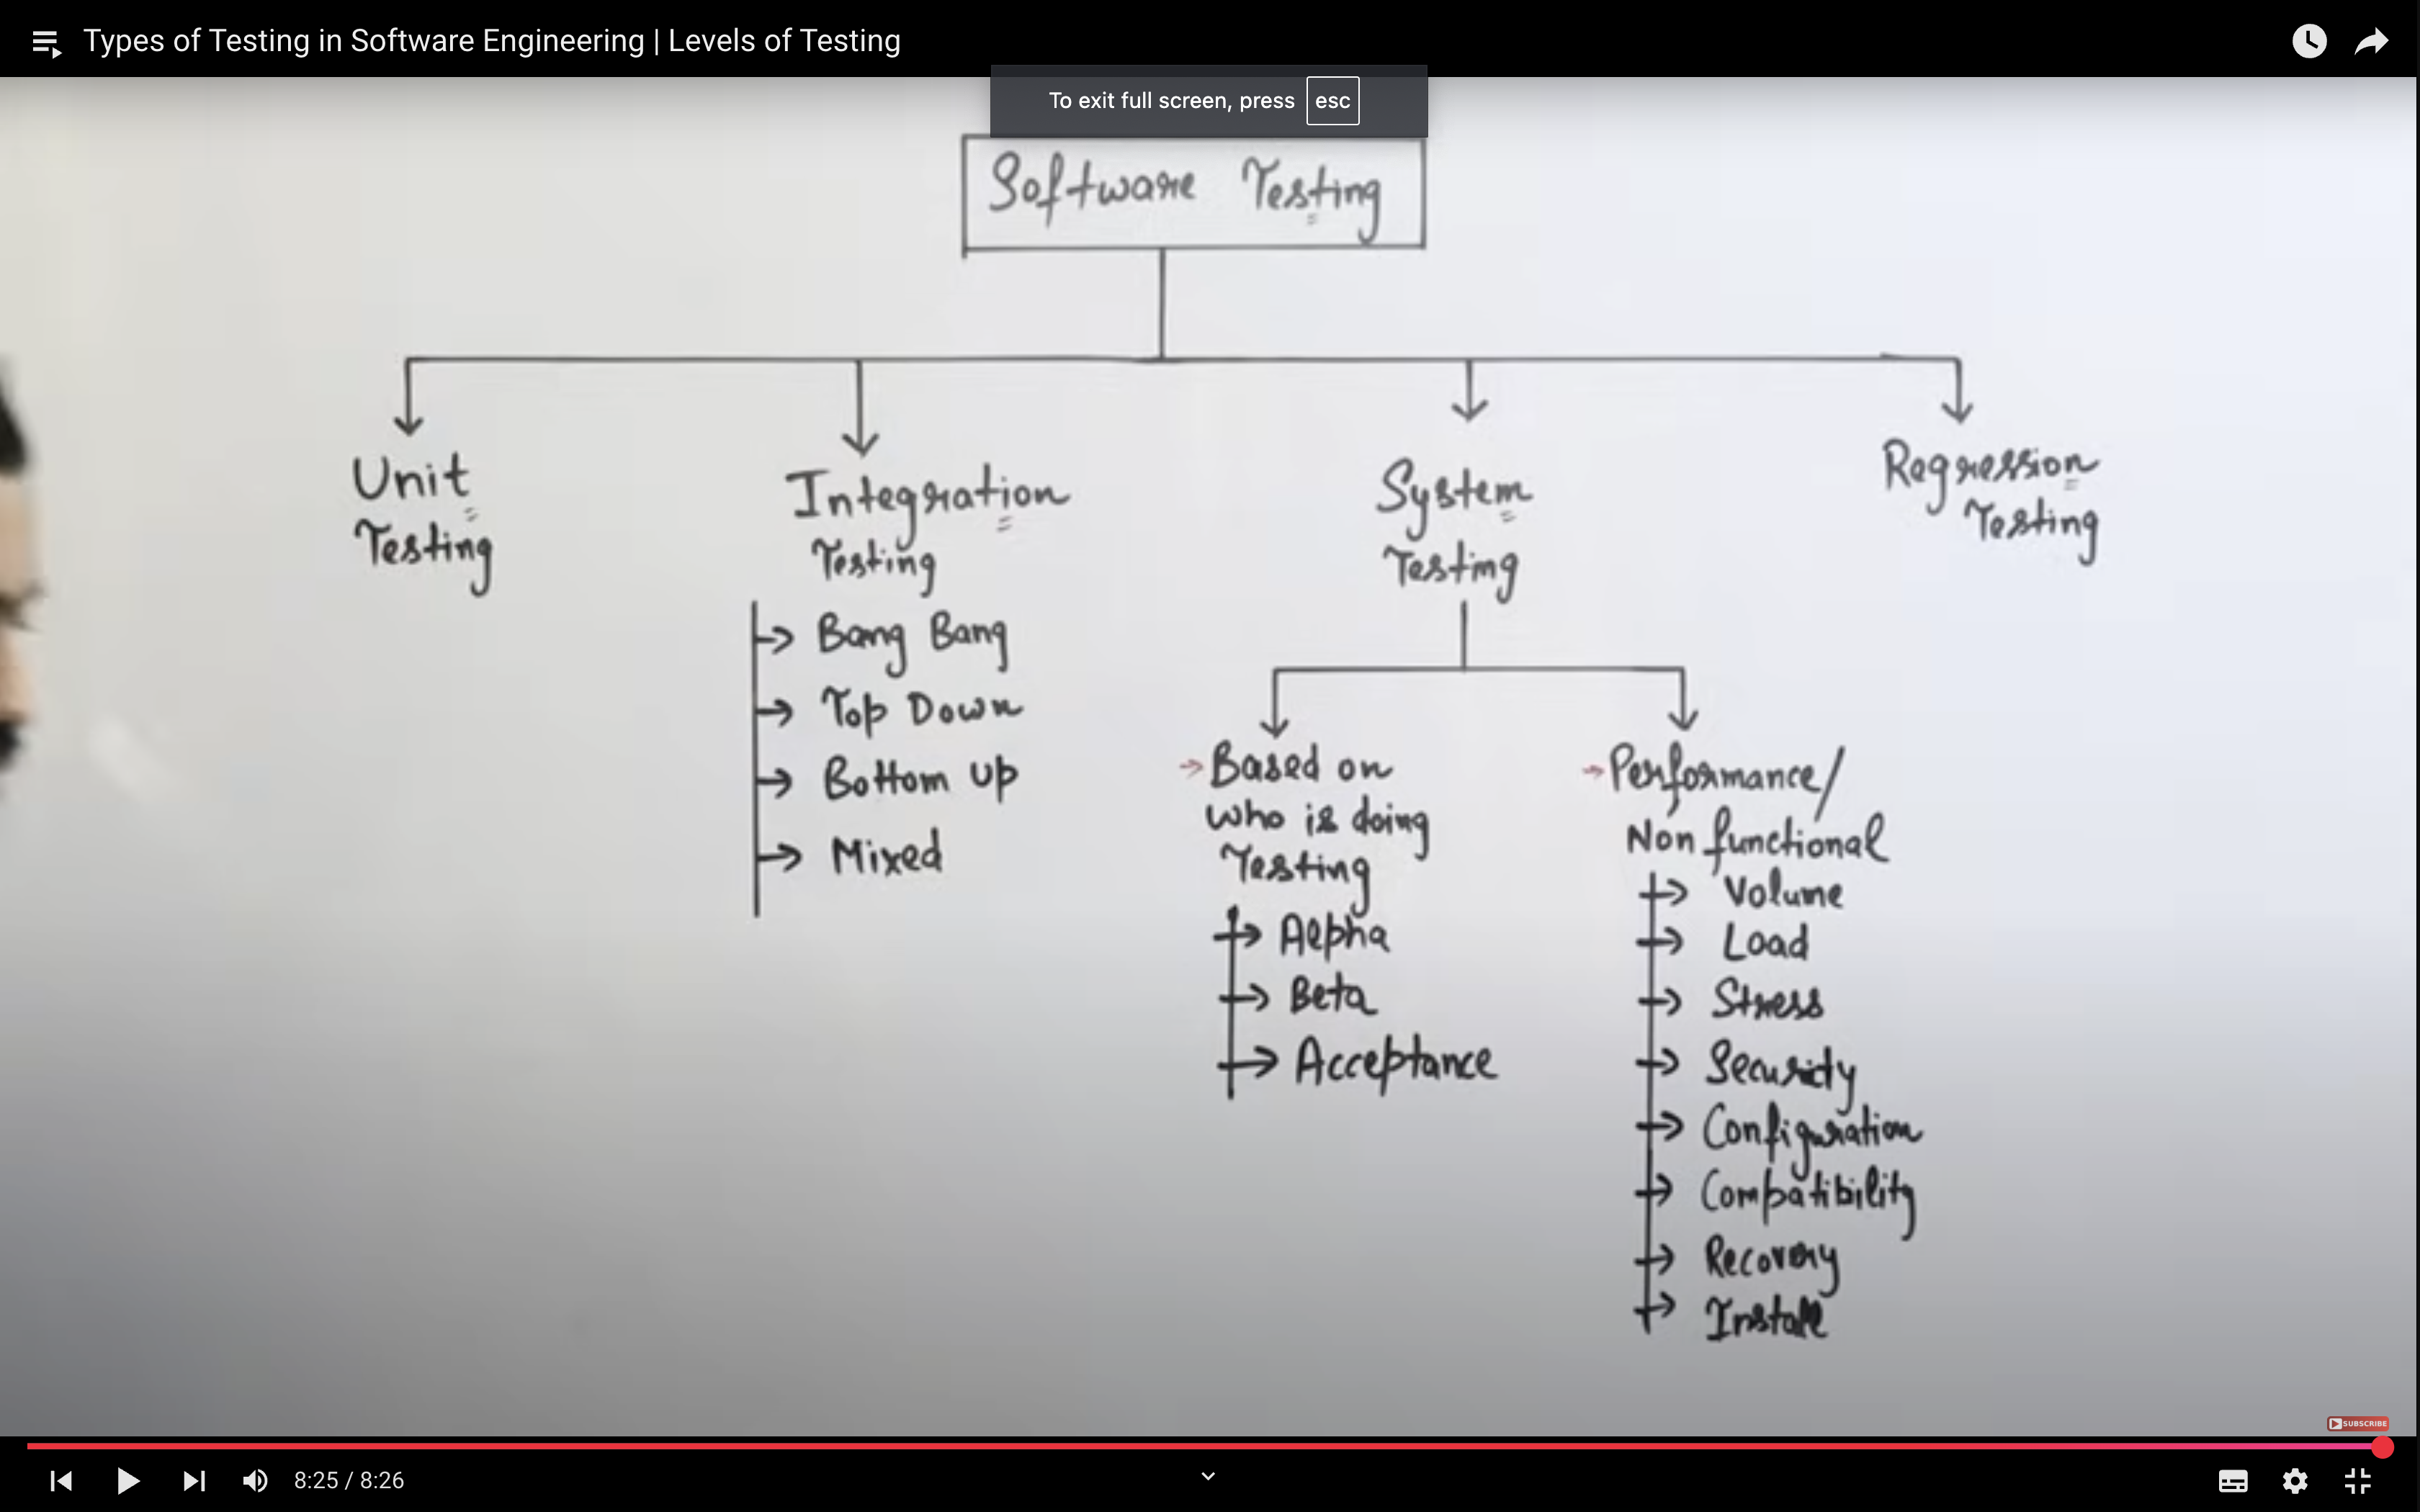 Types of Testing in Software Engineering | Levels of Testing
To exit full screen, press esc
Software Testing
Unit
Testing
Integration
Testing
Bang Bang
Top Down
Bottom up
Mixed
System
Testing
Based on
who is doing
Testing
Alpha
Beta
Acceptance
Performance/
Non functional
Volume
Load
Stress
Security
Configuration
Compatibility
Recovery
Install
Regression
Testing
SUBSCRIBE
8:25 / 8:26